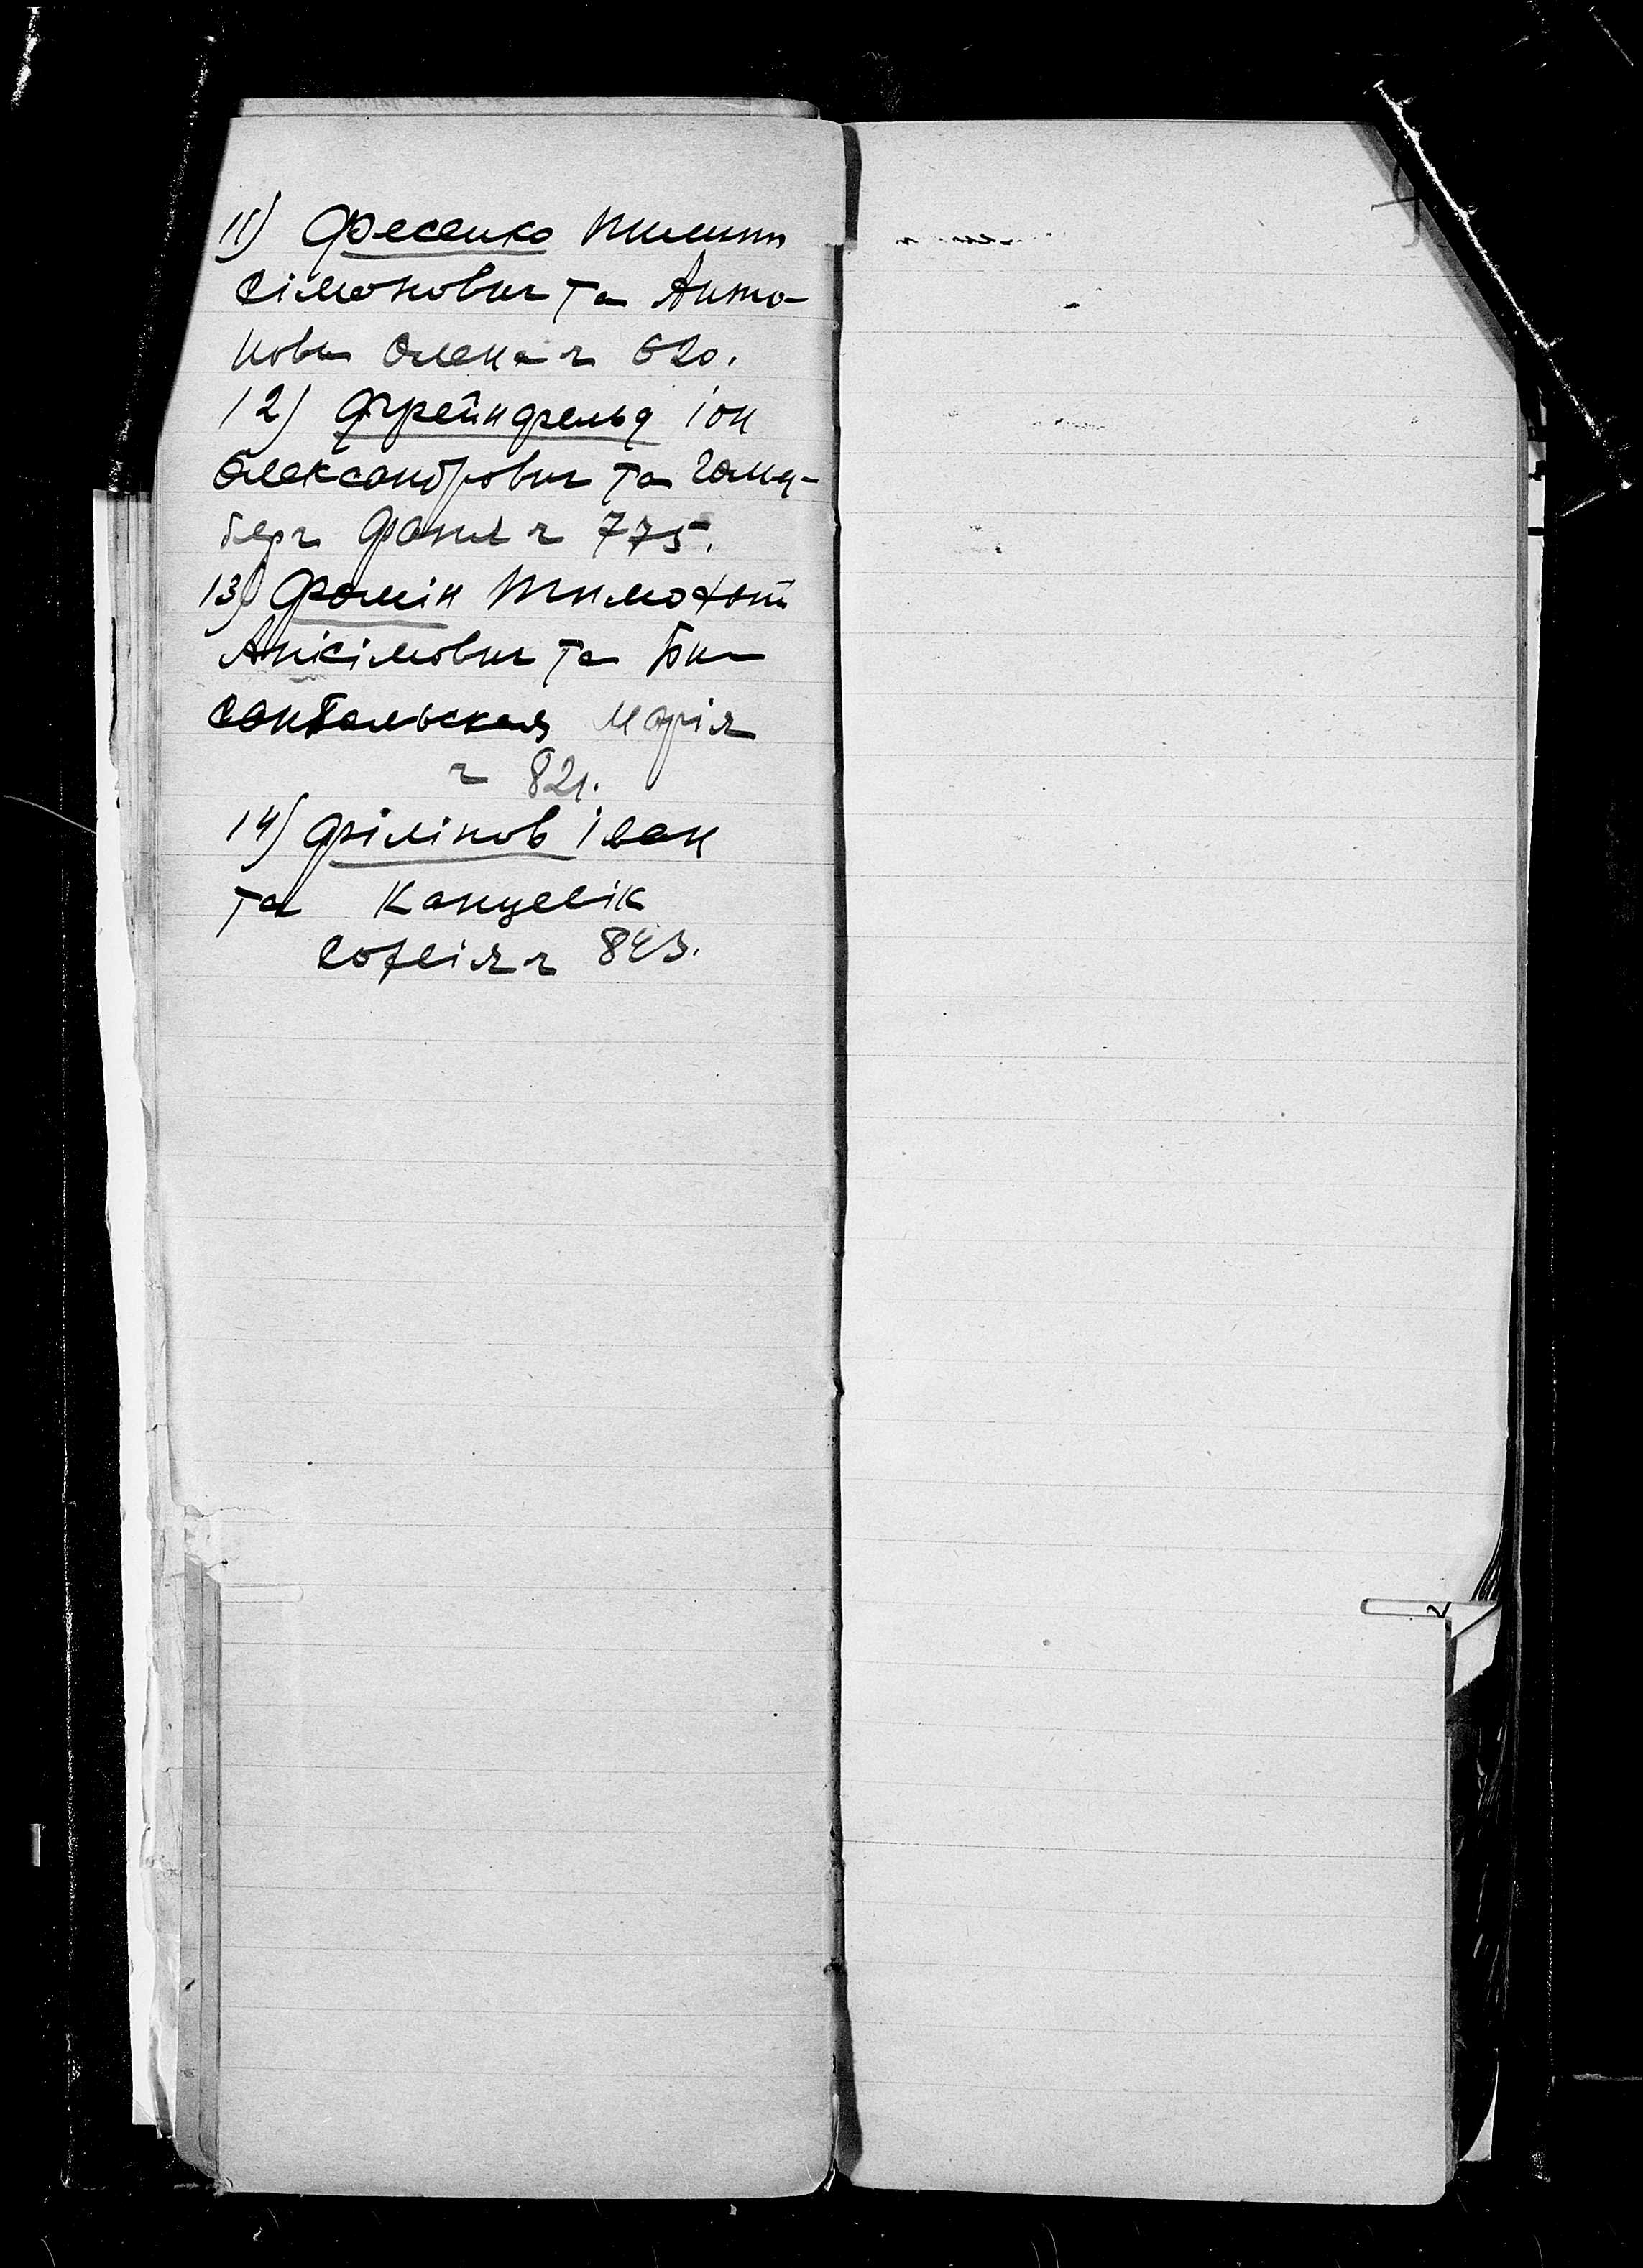 11) Фесенко Пилип
Сімонович та Анто-
нова Олена ч 620.
12) Фрейнфельд Іон
Олександрович та Гольд-
берг Фаня ч 775.
13) Фомін Тимофій
Анісімович та
Марія
ч 821.
14) Філіпов Іван
та Канцевік
Софія ч 843.